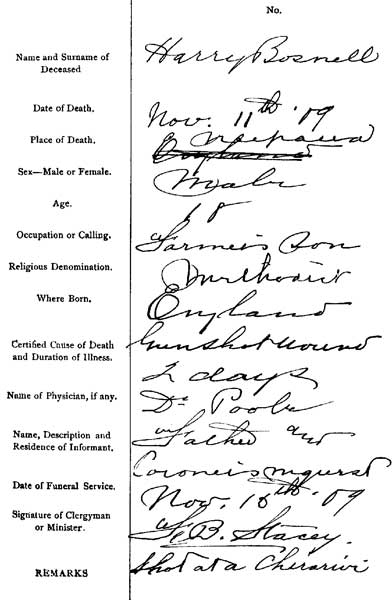 No.
Name and Surname of Deceased Harry Bosnell
Date of Death. Nov. 11th '09
Place of Death. Neepawa
Sex—Male or Female. Male
Age. 18
Occupation or Calling. Farmer's Son
Religious Denomination. Methodist
Where Born. England
Certified Cause of Death Gunshot Wound
and Duration of Illness. 2 days
Name of Physician, if any. Dr Poole
Name, Description and Residence of Informant. Father and
Coroner's inquest
Date of Funeral Service. Nov. '09
Signature of Clergyman or Minister. F. B. Stacey.
REMARKS Shot at a Cherarivi